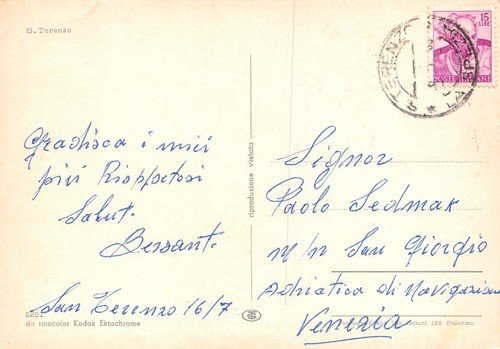 S. Terenzo
S. TERENZO
LA SPEZIA
15
LIRE
POSTE ITALIANE
Gradisca i miei
più Rispettosi
Saluti.
San Terenzo 16/7
2201
da fotocolor Kodak Ektachrome
riproduzione vietata
Signor
Paolo Sedmak
m/n San Giorgio
Adriatica di Navigazione
Venezia
Palermo